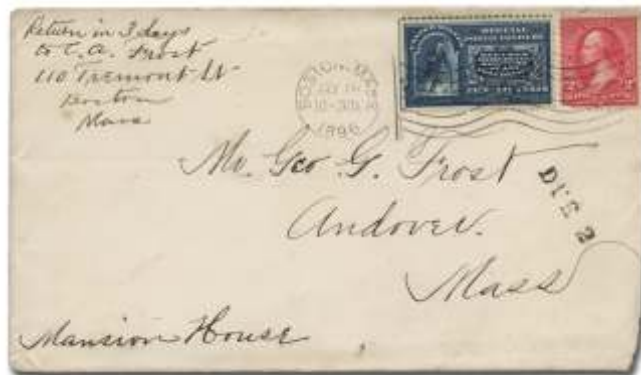 Return in 3 days
to C. A. Frost
110 Tremont St
Boston
Mass
BOSTON, MASS
10-30
1896
Mr. Geo G. Frost
Andover.
Mass
DUE 2
Mansion House